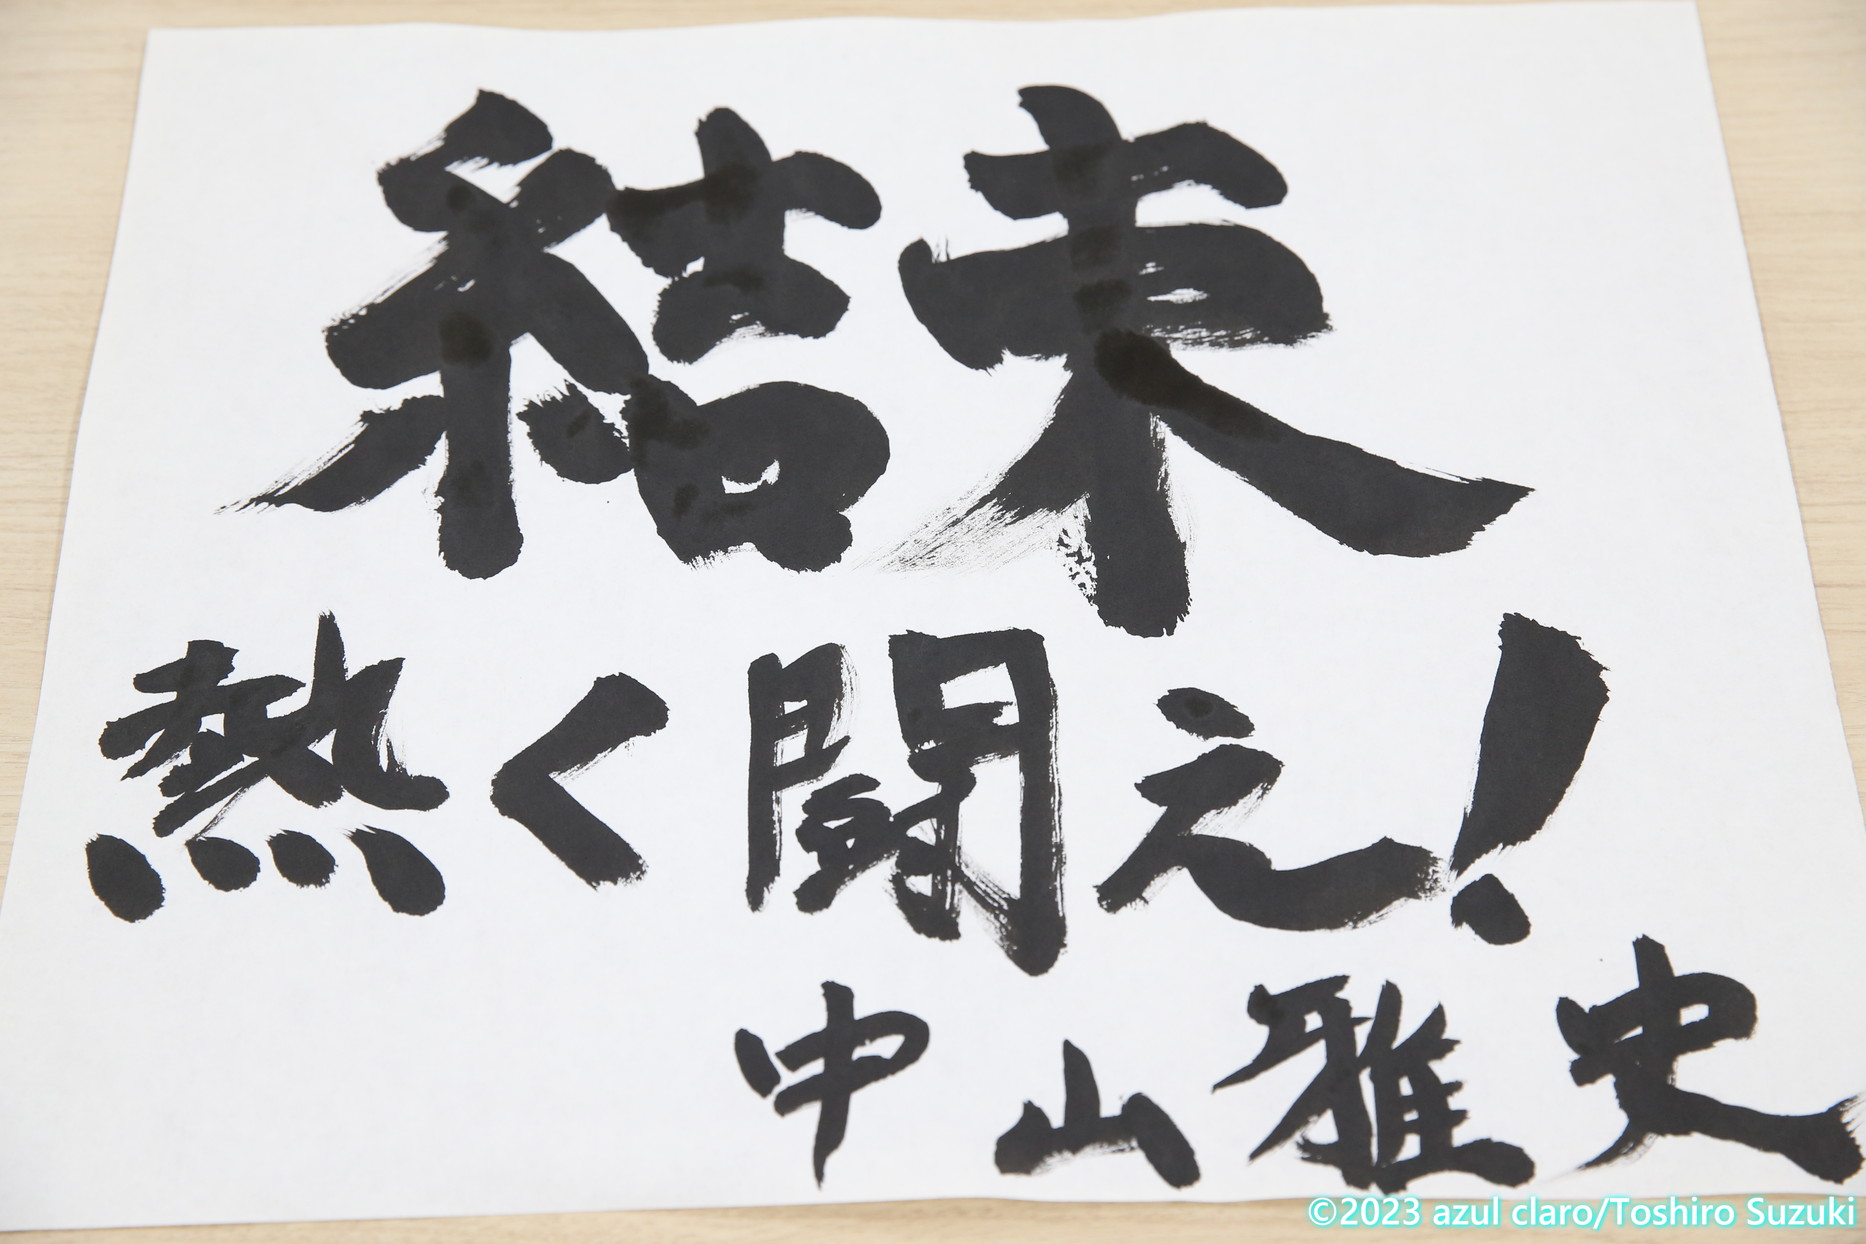 結束
熱く闘え!
中山雅史
©2023 azul claro/Toshiro Suzuki